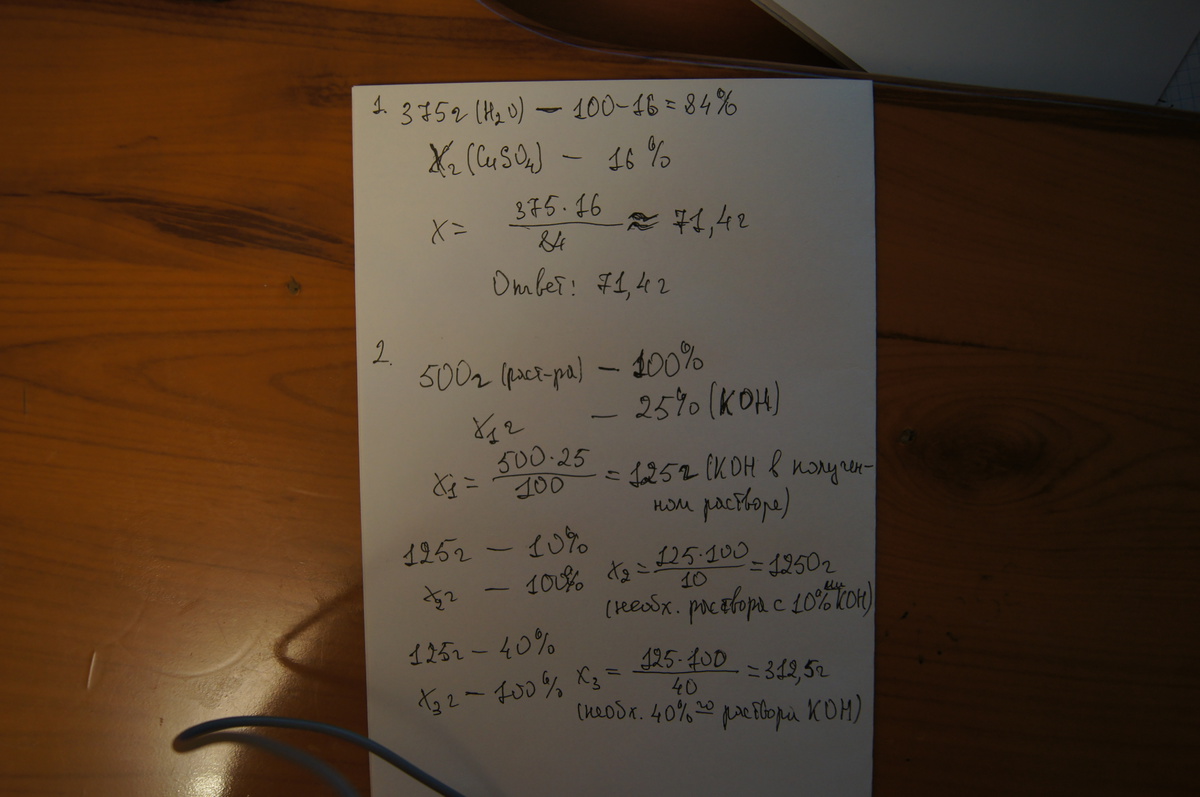 1. 375г (H₂O) — 100-16=84%
Xг (CuSO₄) — 16%
X= 375·16/84 ≈ 71,4г
Ответ: 71,4г
2.
500г (раст-ра) — 100%
X₁г — 25% (KOH)
X₁= 500·25/100 = 125г (KOH в получен-
ном растворе)
125г — 10%
X₂г — 100%
X₂= 125·100/10 = 1250г
(необх. раствора с 10%ми KOH)
125г — 40%
X₃г — 100%
X₃= 125·100/40 = 312,5г
(необх. 40%го раствора KOH)